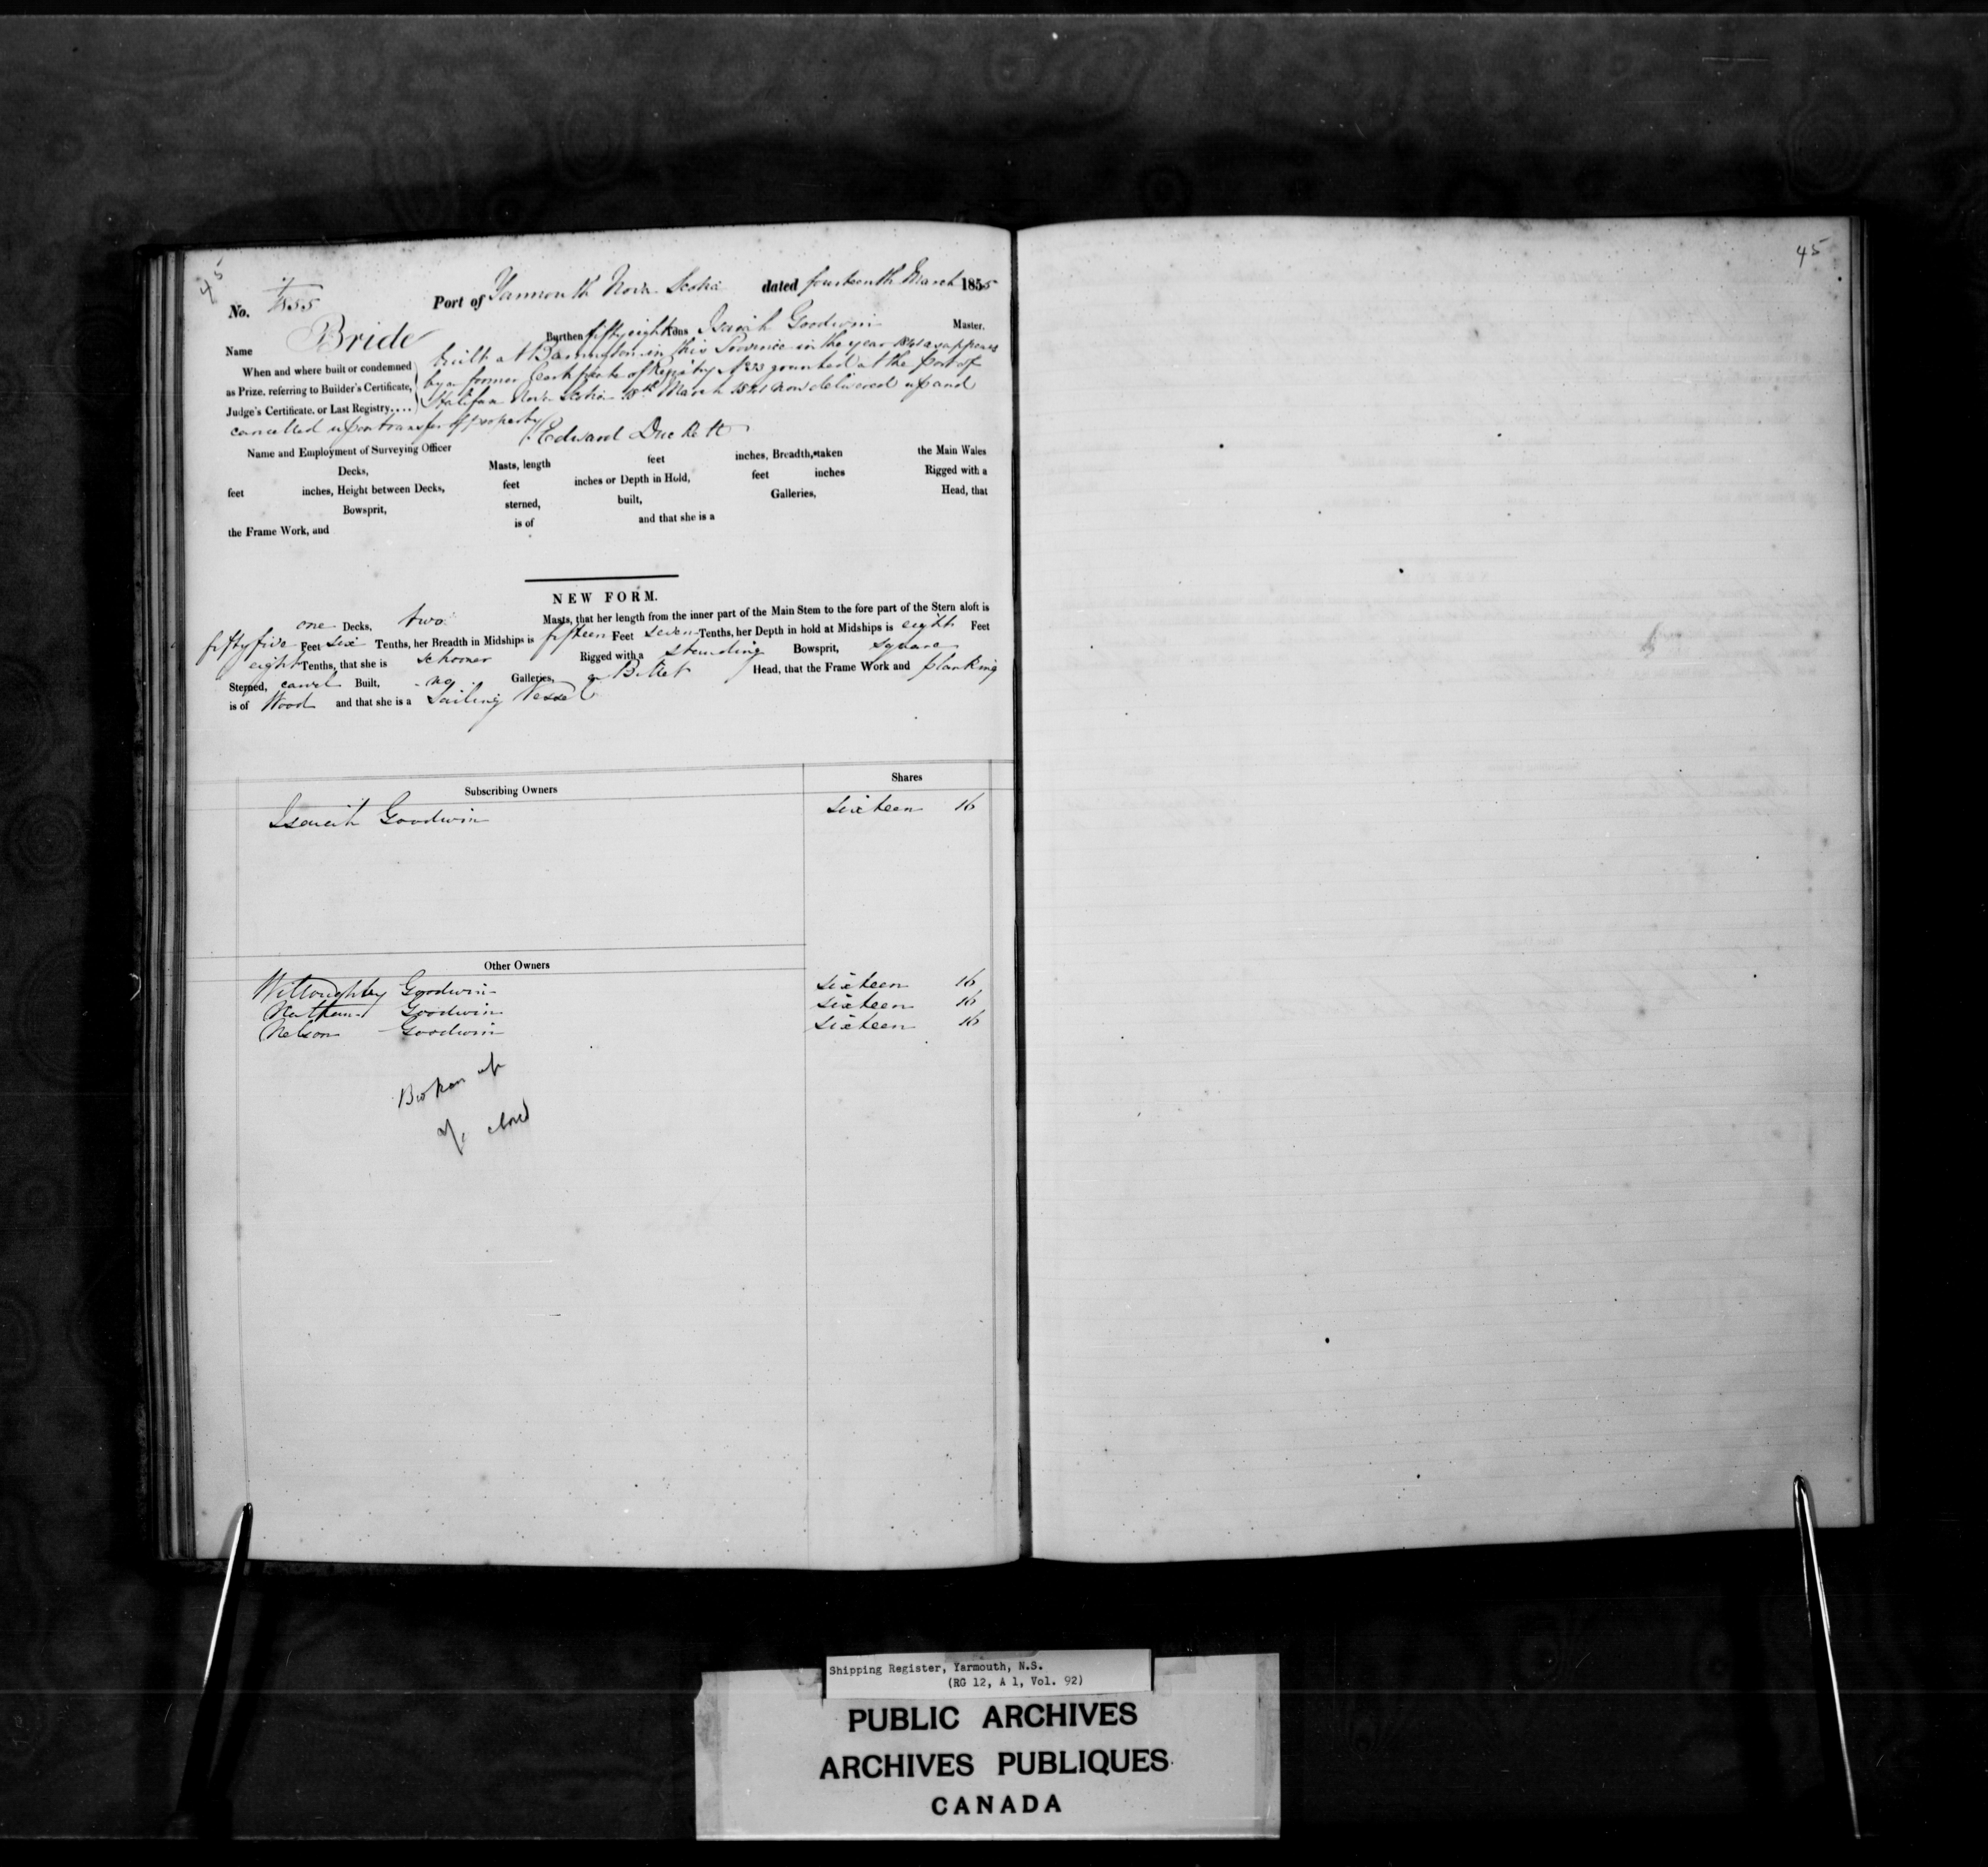 45
No. 7/1855 Port of Yarmouth Nova Scotia dated fourteenth March 1855
Name Bride Burthen fifty eight Tons Isaiah Goodwin Master.
When and where built or condemned as Prize, referring to Builder's Certificate, Judge's Certificate, or Last Registry....
built at Barrington in this Province in the year as appears
by a former Certificate of Registry No 23 granted at the port of
Halifax Nova Scotia 18th March now delivered up and
cancelled upon transfer of property
Name and Employment of Surveying Officer Edward Duckett
Decks, Masts, length feet inches, Breadth, taken the Main Wales
feet inches, Height between Decks, feet inches or Depth in Hold, feet inches Rigged with a
Bowsprit, sterned, built, Galleries, Head, that
the Frame Work, and is of and that she is a
NEW FORM.
one Decks, two Masts, that her length from the inner part of the Main Stem to the fore part of the Stern aloft is
fifty five Feet six Tenths, her Breadth in Midships is fifteen Feet seven Tenths, her Depth in hold at Midships is eight Feet
eight Tenths, that she is schooner Rigged with a standing Bowsprit, square
Sterned, carvel Built, no Galleries, a Billet Head, that the Frame Work and planking
is of Wood and that she is a Sailing Vessel
Subscribing Owners Shares
Isaiah Goodwin sixteen 16
Other Owners
Willoughby Goodwin sixteen 16
Nathan Goodwin sixteen 16
Nelson Goodwin sixteen 16
Broken up
closed
45
Shipping Register, Yarmouth, N.S.
(RG 12, A 1, Vol. 92)
PUBLIC ARCHIVES
ARCHIVES PUBLIQUES
CANADA